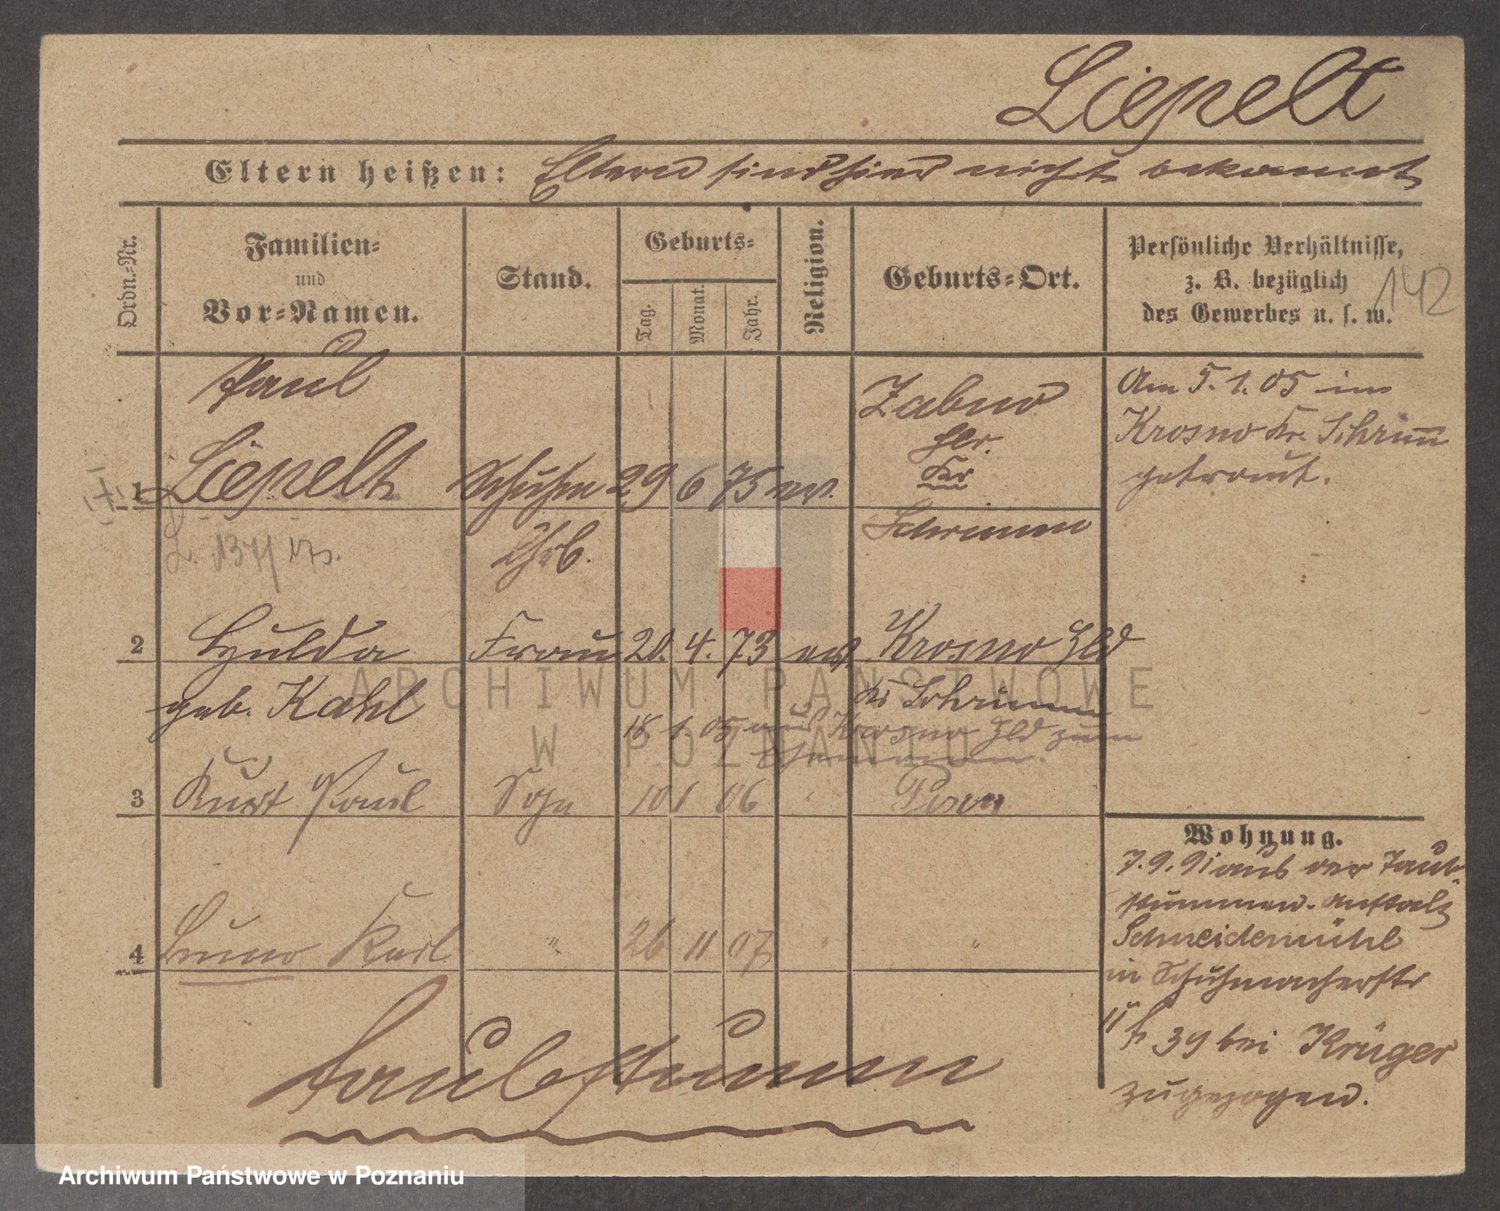 Liepelt
Eltern heißen: Eltern sind hier nicht bekannt
Ordn.-Nr.
Familien-
und
Vor-Namen.
Stand.
Geburts-
Tag.
Monat.
Jahr.
Religion.
Geburts-Ort.
Persönliche Verhältnisse,
z. B. bezüglich
des Gewerbes u. s. w.
142
Paul
Liepelt
1
Schuhm
29 6 75 ev.
Zabno
Kr
Schrimm
Am 5.1.05 in
Krosno Kr. Schrimm
getraut.
2 Hulda Frau 20. 4. 73 ev Krosno Hld
geb. Kahl
Kr Schrimm
18 1 05 aus Krosno Hld zum
Ehemann.
3 Kurt Paul Sohn 10 1 06 Posen
4 Bruno Karl " 26 11 07 " "
taubstumm
Wohnung.
7.9.91 aus der Taub-
stummen-Anstalt
Schneidemühl
in Schuhmacherstr
11 39 bei Krüger
zugezogen.
ARCHIWUM PAŃSTWOWE
W POZNANIU
Archiwum Państwowe w Poznaniu